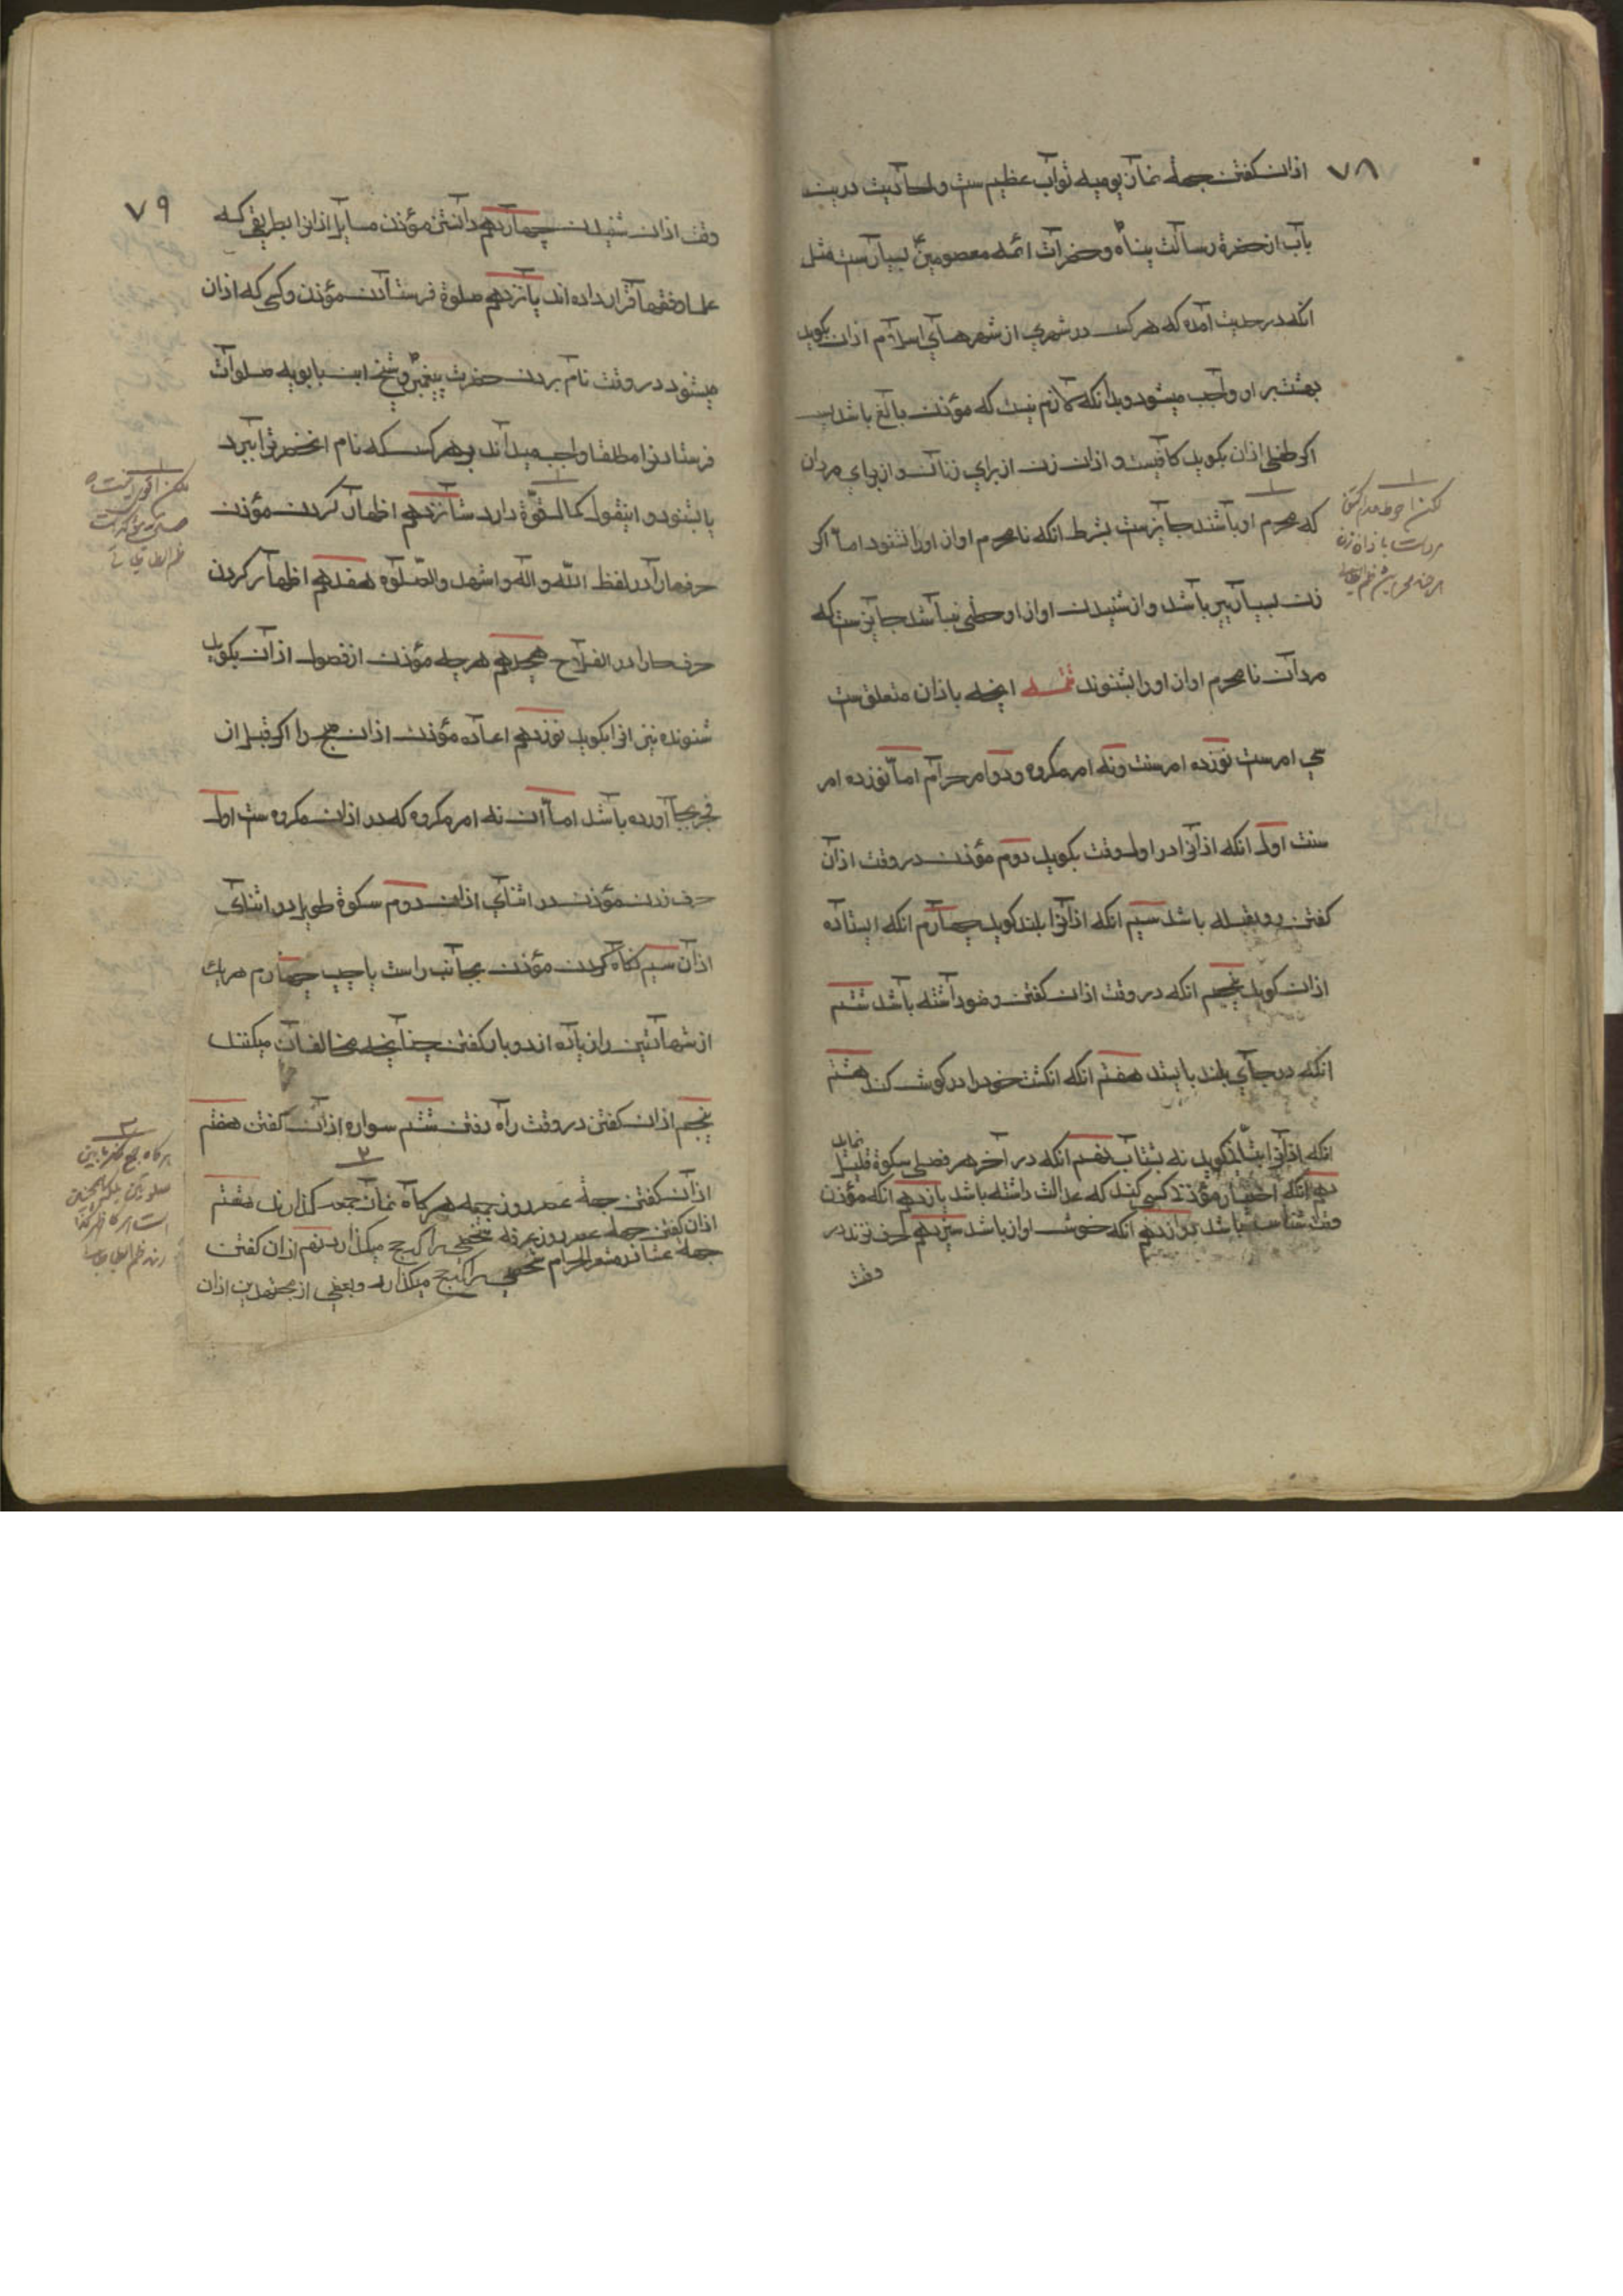 ۷۸
اذان گفتن جههٔ نماز یومیه ثواب عظیم ست و احادیث درین
باب از حضرة رسالت پناه و حضرات ائمه معصومین بسیارست مثل
انکه در حدیث آمده که هر کس در شهری از شهرهای اسلام اذان بکوید
بهشت بر او واجب میشود و بدانکه لازم نیست که مؤذن بالغ باشد پس
اکر طفلی اذان بکوید کافیست و اذان زن از برای زنان و از برای مردان
که محرم او باشند جایزست بشرط انکه نامحرم اواز او را نشنود اما اکر
زن بسیار پیر باشد و از شنیدن اواز او حظی نباشد جایزست که
مردان نامحرم اواز او را بشنوند تتمه انچه باذان متعلق ست
سی امرست نوزده امر سنت و نه امر مکروه و دو امر حرام اما نوزده امر
سنت اول انکه اذانرا در اول وقت بکوید دوم مؤذن در وقت اذان
کفتن رو بقبله باشد سیم انکه اذانرا بلند کوید چهارم انکه ایستاده
اذان کوید پنجم انکه در وقت اذان کفتن وضو داشته باشد ششم
انکه در جای بلند بایستد هفتم انکه انکشت خود را در کوش کند هشتم
انکه اذانرا بتأنی کوید نه بشتاب نهم انکه در آخر هر فصلی سکوة قلیل نماید
دهم انکه اختیار مؤذن کسی کند که عدالت داشته باشد یازدهم انکه مؤذن
وقت شناس باشد دوازدهم انکه خوش اواز باشد سیزدهم حرف نزند در
وقت
لکن احوط عدم اکتفا
مردست باذان زن
هر چند محرم باشد
۷۹
وقت اذان شنیدن چهاردهم دانستن مؤذن مسایل اذانرا بطریقی که
علما و فقها قرار داده اند پانزدهم صلوة فرستادن مؤذن و کسی که اذان
میشنود در وقت نام بردن حضرت پیغمبر و شیخ ابن بابویه صلوات
فرستادنرا مطلقا واجب میداند بر هر کس که نام انحضرترا ببرد
یا بشنود و اینقول کمال قوّة دارد شانزدهم اظهار کردن مؤذن
حرف هارا در لفظ الله و اله و اشهد و الصّلوة هفدهم اظهار کردن
حرف حارا در الفلاح هجدهم هر چه مؤذن از فصول اذان بکوید
شنونده نیز انرا بکوید نوزدهم اعاده مؤذن اذان صبح را اکر قبل از
فجر بجا آورده باشد اما ان نه امر مکروه که در اذان مکروه ست اول
حرف زدن مؤذن در اثنای اذان دوم سکوة طویل در اثنای
اذان سیم نکاه کردن مؤذن بجانب راست یا چپ چهارم هر یک
از شهادتین را زیاده از دو بار کفتن چنانچه مخالفان میکنند
پنجم اذان کفتن در وقت راه رفتن ششم سواره اذان کفتن هفتم
اذان کفتن جههٔ عصر روز جمعه هر کاه نماز جمعه کذارند هشتم
اذان کفتن جههٔ عصر روز عرفه شخصی را که حج میکذارد نهم اذان کفتن
جههٔ عشا در مشعر الحرام شخصی را که حج میکذارد و بعضی از مجتهدین اذان